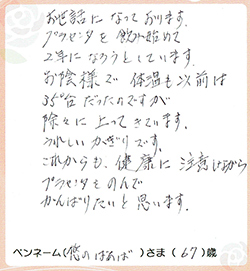 お世話になっております。
プラセンタを飲み始めて
2年になろうとしています。
お陰様で体温も以前は
35°台だったのですが
除々に上ってきています。
うれしいかぎりです。
これからも、健康に注意しながら
プラセンタをのんで
がんばりたいと思います。
ペンネーム(悠のばあば)さま(67)歳